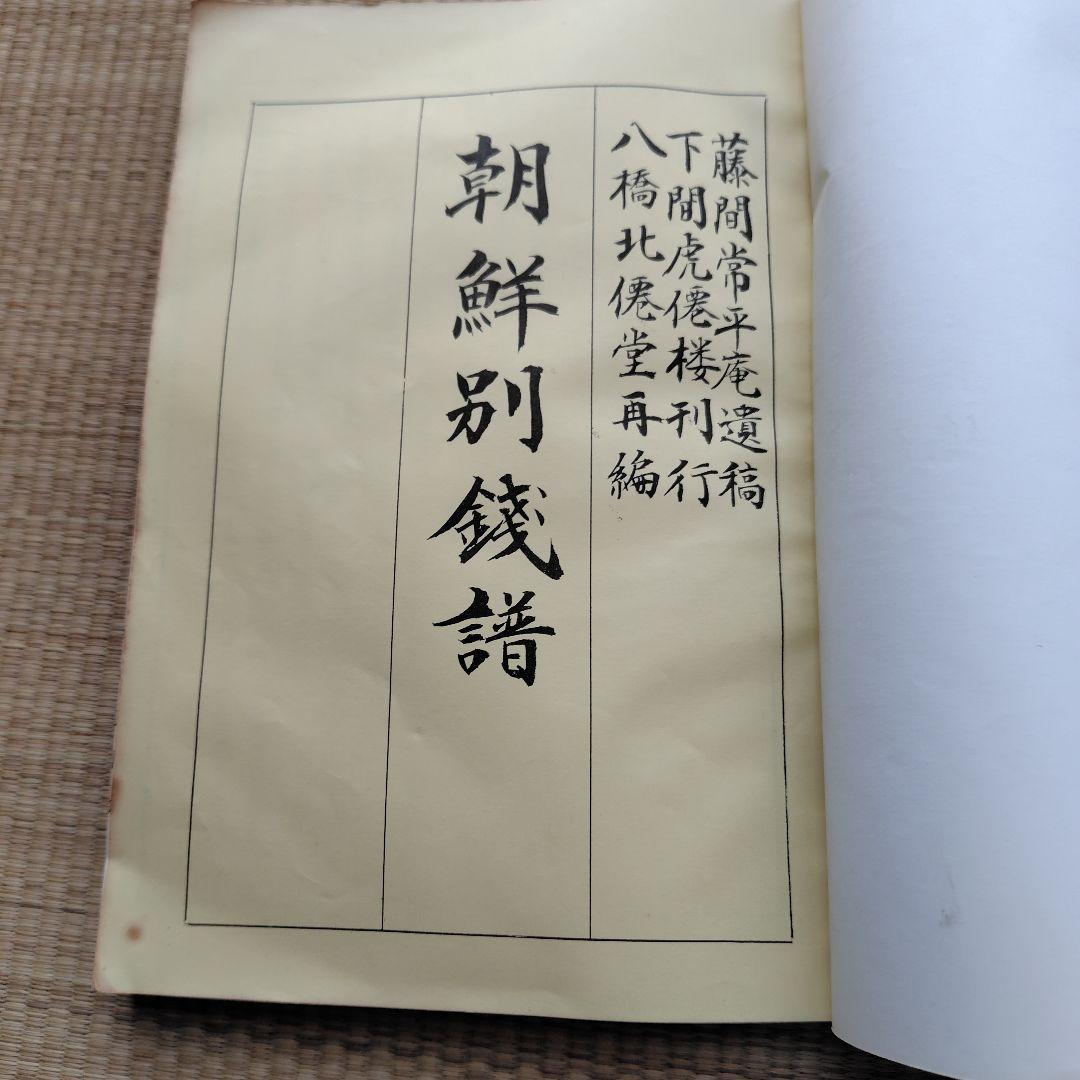 藤間常平庵遺稿
下間虎僊楼刊行
八橋北僊堂再編
朝鮮別錢譜